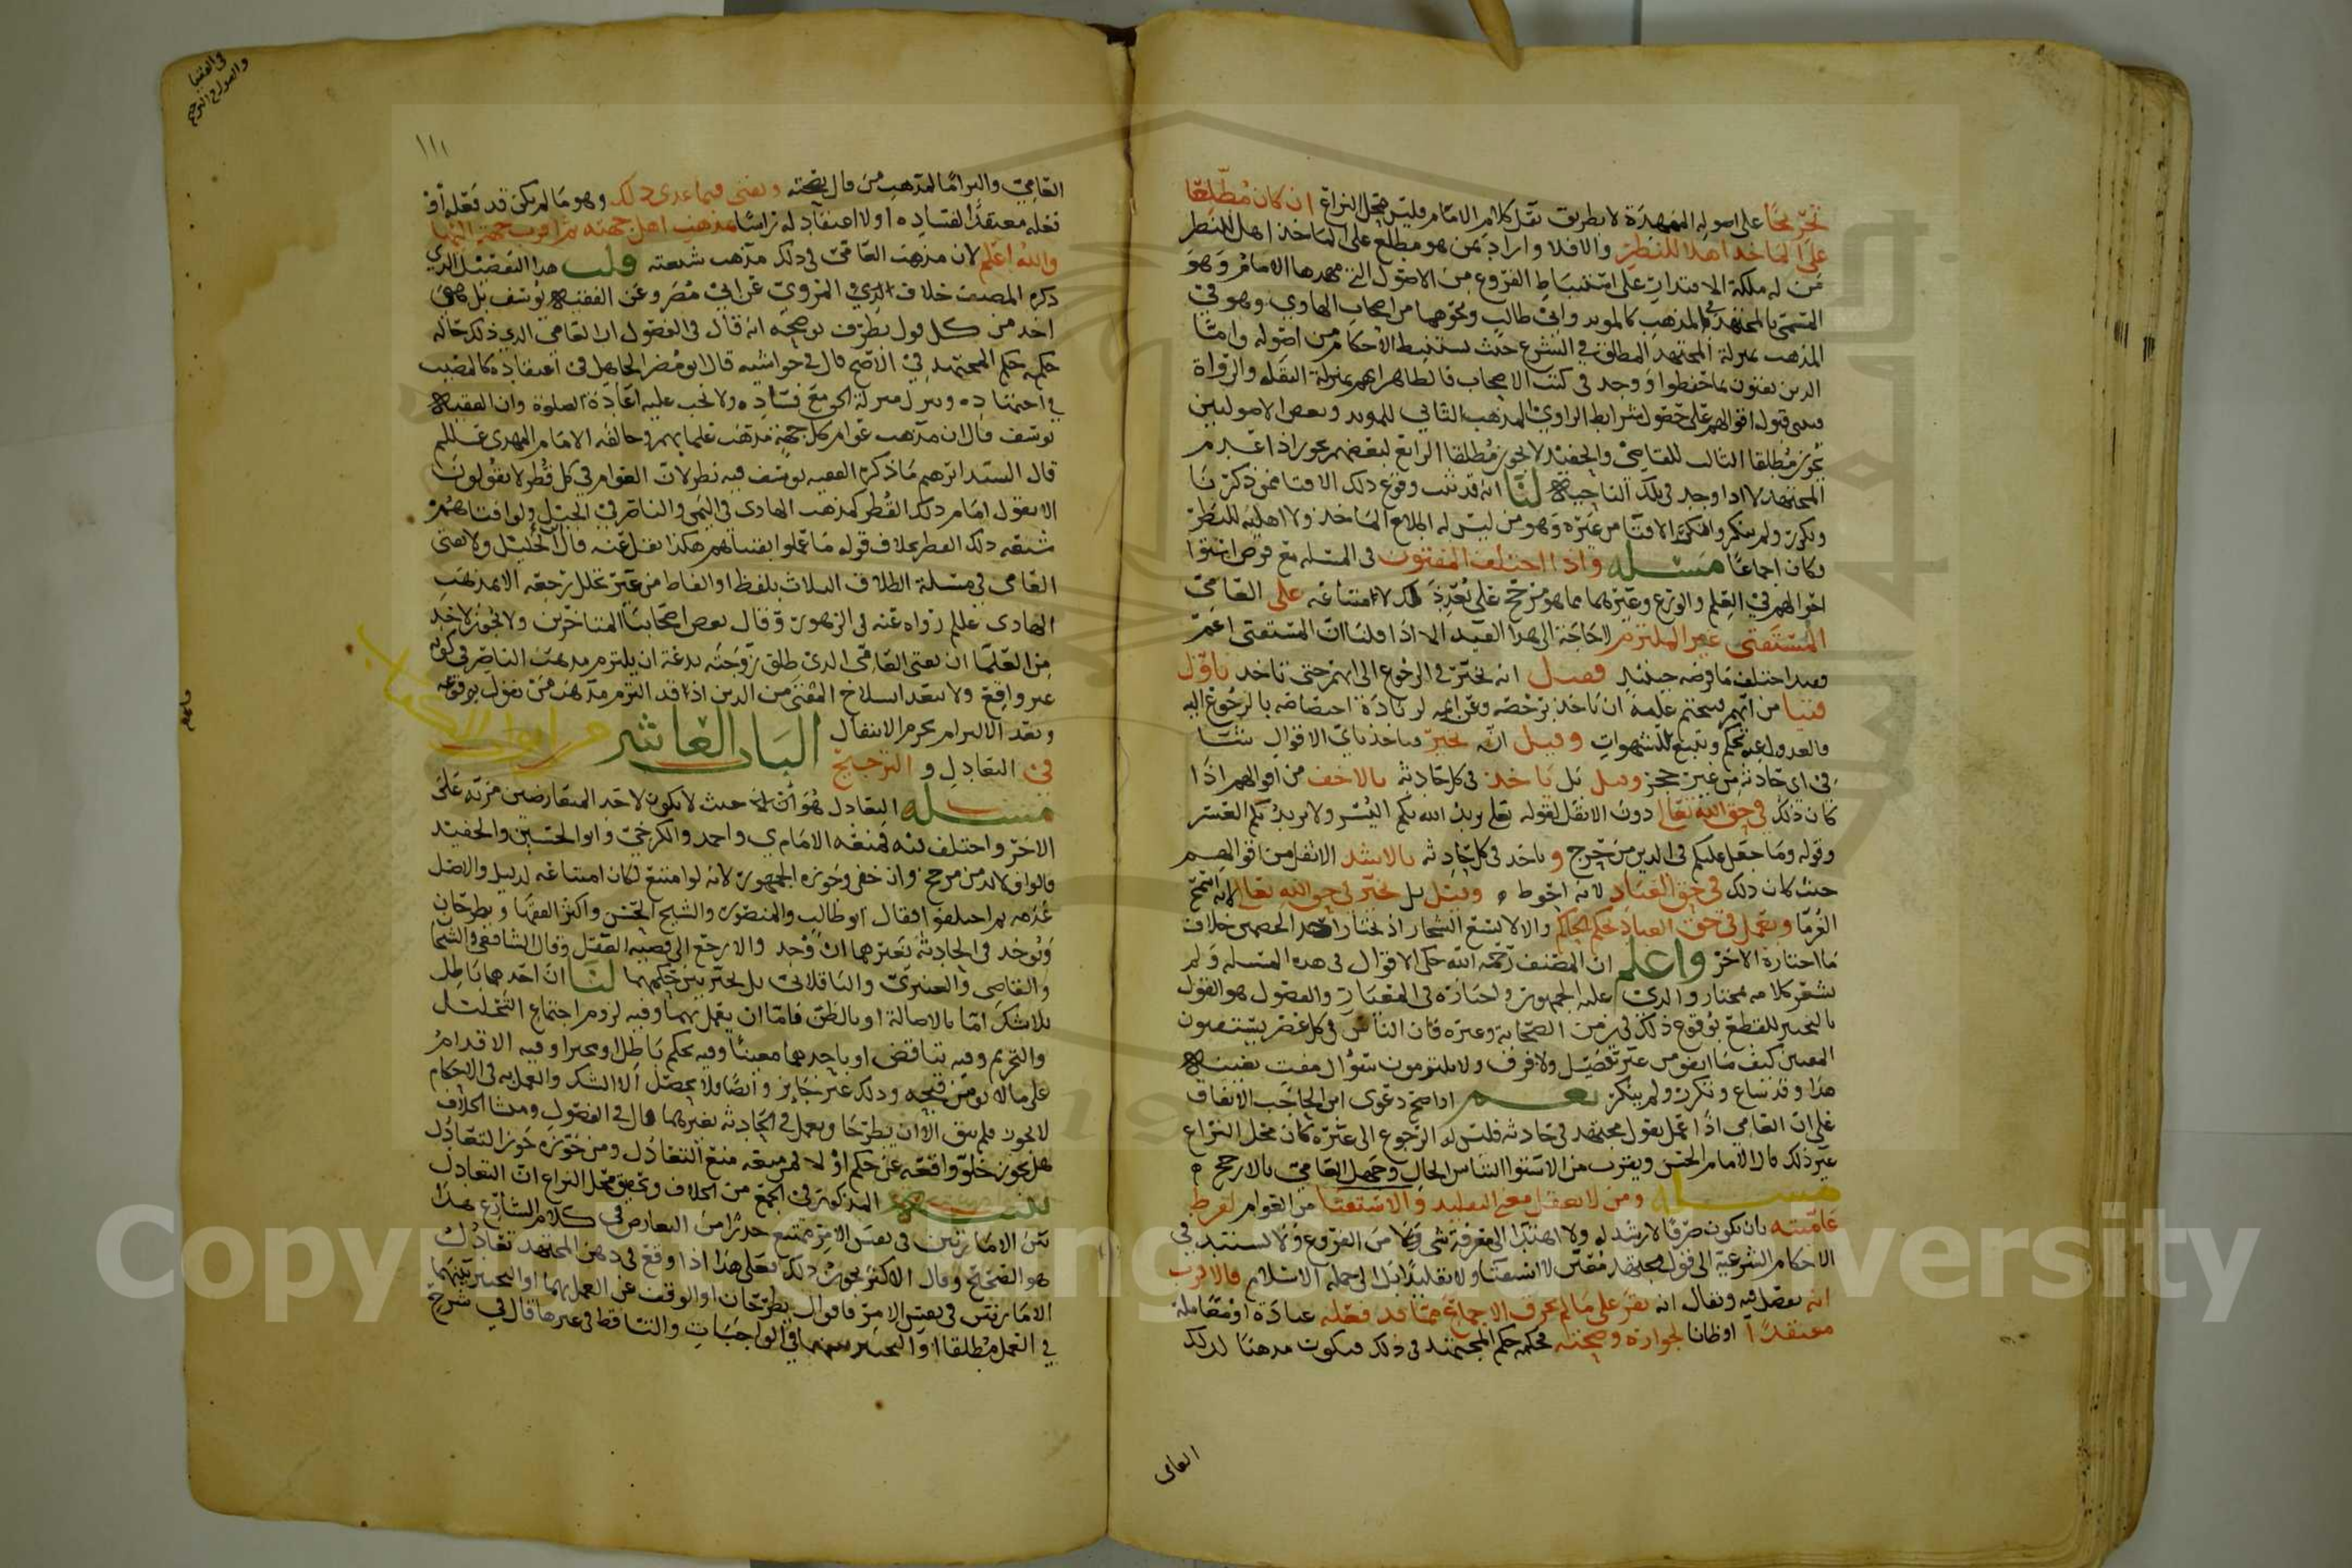 تخريجًا على اصوله الممهدة لا بطريق نقل كلام الامام فليس محل النزاع ان كان مُطّلعًا
على المآخذ اهلا للنظر والا فلا واراد بمن هو مطلع على المآخذ اهل للنظر
من له ملكة الاقتدار على استنباط الفروع من الاصول التي مهدها الامام وهو
المسمى بالمجتهد في المذهب كالمويد وابي طالب ونحوهما من اصحاب الهادي وهو في
المذهب بمنزلة المجتهد المطلق في الشرع حيث يستنبط الاحكام من اصوله وامّا
الذين يفتون بما حفظوا او وجد في كتب الاصحاب فالظاهر انهم بمنزلة النقله والرواة
فيبنى قبول اقوالهم على حصول شرايط الراوي المذهب الثاني للمويد وبعض الاصوليين
يجوز مُطلقا الثالث للقاضي والحفيد لا يجوز مُطلقا الرابع لبعضهم يجوز اذا عدم
المجتهد لا اذا وجد في تلك الناحية لنَا انه قد ثبت وقوع ذلك الافتا ممن ذكرنا
وتكرر ولم ينكر وانكر الافتا من غيره وهو من ليس له اطلاع المآخذ ولا اهلية للنظر
وكان اجماعًا مسئله واذا اختلف المفتون في المسله مع فرض استوا
احوالهم في العلم والورع وغيرهما مما هو مرجح على العامي
المستفتي غير الملتزم لا حاجة الى هذا القيد الا اذا قلنا ان المستفتي اعمّ
فقد اختلف ما فرضه حينئذ فقيل انه يخيّر في الرجوع الى ايهم حتى ياخذ باوّل
فتيا من ايهم
فالعدول عنه تحكم وتتبع للشهوات وقيل انّه يخيّر فياخذ باي الاقوال شا
في اي حادثه من غير حجز وقيل بل ياخذ في كل حادثه بالاخف من اقوالهم اذا
كان ذلك في حق الله تعالى دون الاثقل لقوله تعالى يريد الله بكم اليُسر ولا يريد بكم العسر
وقوله وما جعل عليكم في الدين من حرج و ياخذ في كل حادثه بالاشد الاثقل من اقوالهم
حيث كان ذلك في حق العباد لانه احوط وقيل بل يخير في حق الله تعالى لانه اسمح
الغُرما ويعمل في حق العباد بحكم الحاكم والا لاتسع الشجار اذ يختار احد الخصمين خلاف
ما اختاره الاخر واعلم ان المصنف رحمه الله حكى الاقوال في هذه المسله ولم
يشعر كلامه بمختار والذي عليه الجمهور واختاره في المعيار والفصول هو القول
بالتخيير للقطع بوقوع ذلك في زمن الصحابه وغيره فان الناس في كل عصر يستفتون
المفتين كيف ما اتفق من غير تفصيل ولا فرق ولا يلتزمون سؤال مفت بعينه
هذا وقد شاع وتكرر ولم ينكر نعم اذا صح دعوى ابن الحاجب الاتفاق
على ان العامي اذا عمل بقول مجتهد في حادثه فليس له الرجوع الى غيره كان محل النزاع
غير ذلك قال الامام الحسن ويقرب من الاستوا التباس الحال وجهل العامي بالارجح
مسئله ومن لا يعقل معنى التقليد والاستفتا من العوام لفرط
عاميته بان يكون صرفا لا رشد له ولا اهتدا الى معرفة شي من الفروع ولا يستند في
الاحكام الشرعية الى قول مجتهد معيّن لا استفتا ولا تقليدًا بل الى جمله الاسلام فالاقرب
انه يفصل فيه ويقال انه يقر على ما لم يخرق الاجماع مما قد فعله عبادة او معامله
معتقدًا او ظانا لجوازه وصحته فحكمه حكم المجتهد في ذلك فيكون مذهبًا لذلك
العامي
في الفتيا
والعدول والترجيح
١١١
العامي والتزامًا لمذهب من قال بصحته ويفتى فيما عدى ذلك وهو ما لم يكن قد فعله او
فعله معتقدًا لفساده او لا اعتقاد له راسًا بمذهب اهل جهته ثم اقرب جهة اليها
والله اعلم لان مذهب العامي في ذلك مذهب شيعته قلت هذا التفصيل الذي
ذكره المصنف خلاف الذي المروي عن ابي مُضر وعن الفقيه يوسف بل كانه
اخذ من كل قول بطرف توضيحه انه قال في الفصول ان العامي الذي ذلك حاله
حكمه حكم المجتهد في الاصح قال في حواشيه قال ابو مُضر الجاهل في اعتقاده كالمصيب
في اجتهاده وينزل منزلة الحق مع فساده ولا تجب عليه اعادة الصلوة وان الفقيه
يوسف قال ان مذهب عوام كل جهة مذهب علمايهم وخالفه الامام المهدي عللم
قال السيد ابرهيم ما ذكره الفقيه يوسف فيه نظر لان العوام في كل قُطر لا يقولون
الا بقول امام ذلك القُطر كمذهب الهادي في اليمن والناصر في الجيل
شيعه ذلك القطر بخلاف قوله ما عملوا بفتياهم هكذا نقل عنه ولا يفتى
العامي في مسلة الطلاق الثلاث بلفظ او الفاظ من غير تخلل رجعه الا بمذهب
الهادي عللم رواه عنه في الزهور وقال بعض اصحابنا المتاخرين ولا يجوز لاحد
من العلما ان يفتي العامي الذي طلق زوجته بدعة ان يلتزم مذهب الناصر في كونه
غير واقع ولا يبعد انسلاخ المفتي من الدين اذا قد التزم مذهب من يقول بوقوعه
وبعد الالتزام يحرم الانتقال البَاب العاشر من ابواب الكتاب
في التعادل و الترجيح
مسئله التعادل هُوَ حيث لا يكون لاحد المتعارضين مزيّه على
الاخر واختلف فيه فمنعه الامام ي واحمد والكرخي وابو الحسين والحفيد
قالوا فلا بد من مرجح وان خفي وجوزه الجمهور لانه لو امتنع لكان امتناعه لدليل والاصل
عَدَمه ثم اختلفوا فقال ابو طالب والمنصور والشيخ الحسن واكثر الفقها ويطرحان
ويُوخذ في الحادثة بغيرهما ان وُجد والا رجع الى قضيه العقل وقال الشافعي والشيخان
والقاضي والعنبري والباقلاني بل يخير بين حكمهما لنَا ان احدهما باطل
بلا شك امّا بالاصالة او بالظن فامّا ان يعمل بهما وفيه لزوم اجتماع التحليل
والتحريم وفيه تناقض او باحدهما معينًا وفيه تحكم باطل او مخيرا وفيه الاقدام
على ما لا يومن قبحه وذلك غير جايز وايضًا ولا يحصل الا الشك والعمل به في الاحكام
لا يجوز فلم يبق الا ان يطرحا ويعمل في الحادثه بغيرهما قال في الفصول ومنشا الخلاف
هل يجوز خلوّ واقعه عن حكم او لا فمن منعه منع التعادُل ومن جوّزه جوّز التعادُل
تنبيه المذكور في الجمع من الخلاف وتحقيق محل النزاع انّ التعادل
بين الامارتين في نفس الامر ممتنع حذرًا من التعارض في كلام الشارع هذا
هو الصحيح وقال الاكثر بجواز ذلك فعلى هذا اذا وقع في ذهن المجتهد تعادُل
الامارتين في نفس الامر فاقوال يطرحان او الوقف عن العمل بهما او التخيير بينهما
في العمل مُطلقا او التخيير بينهما في الواجبات والتساقط في غيرها قال في شرح
Copyright © King Saud University